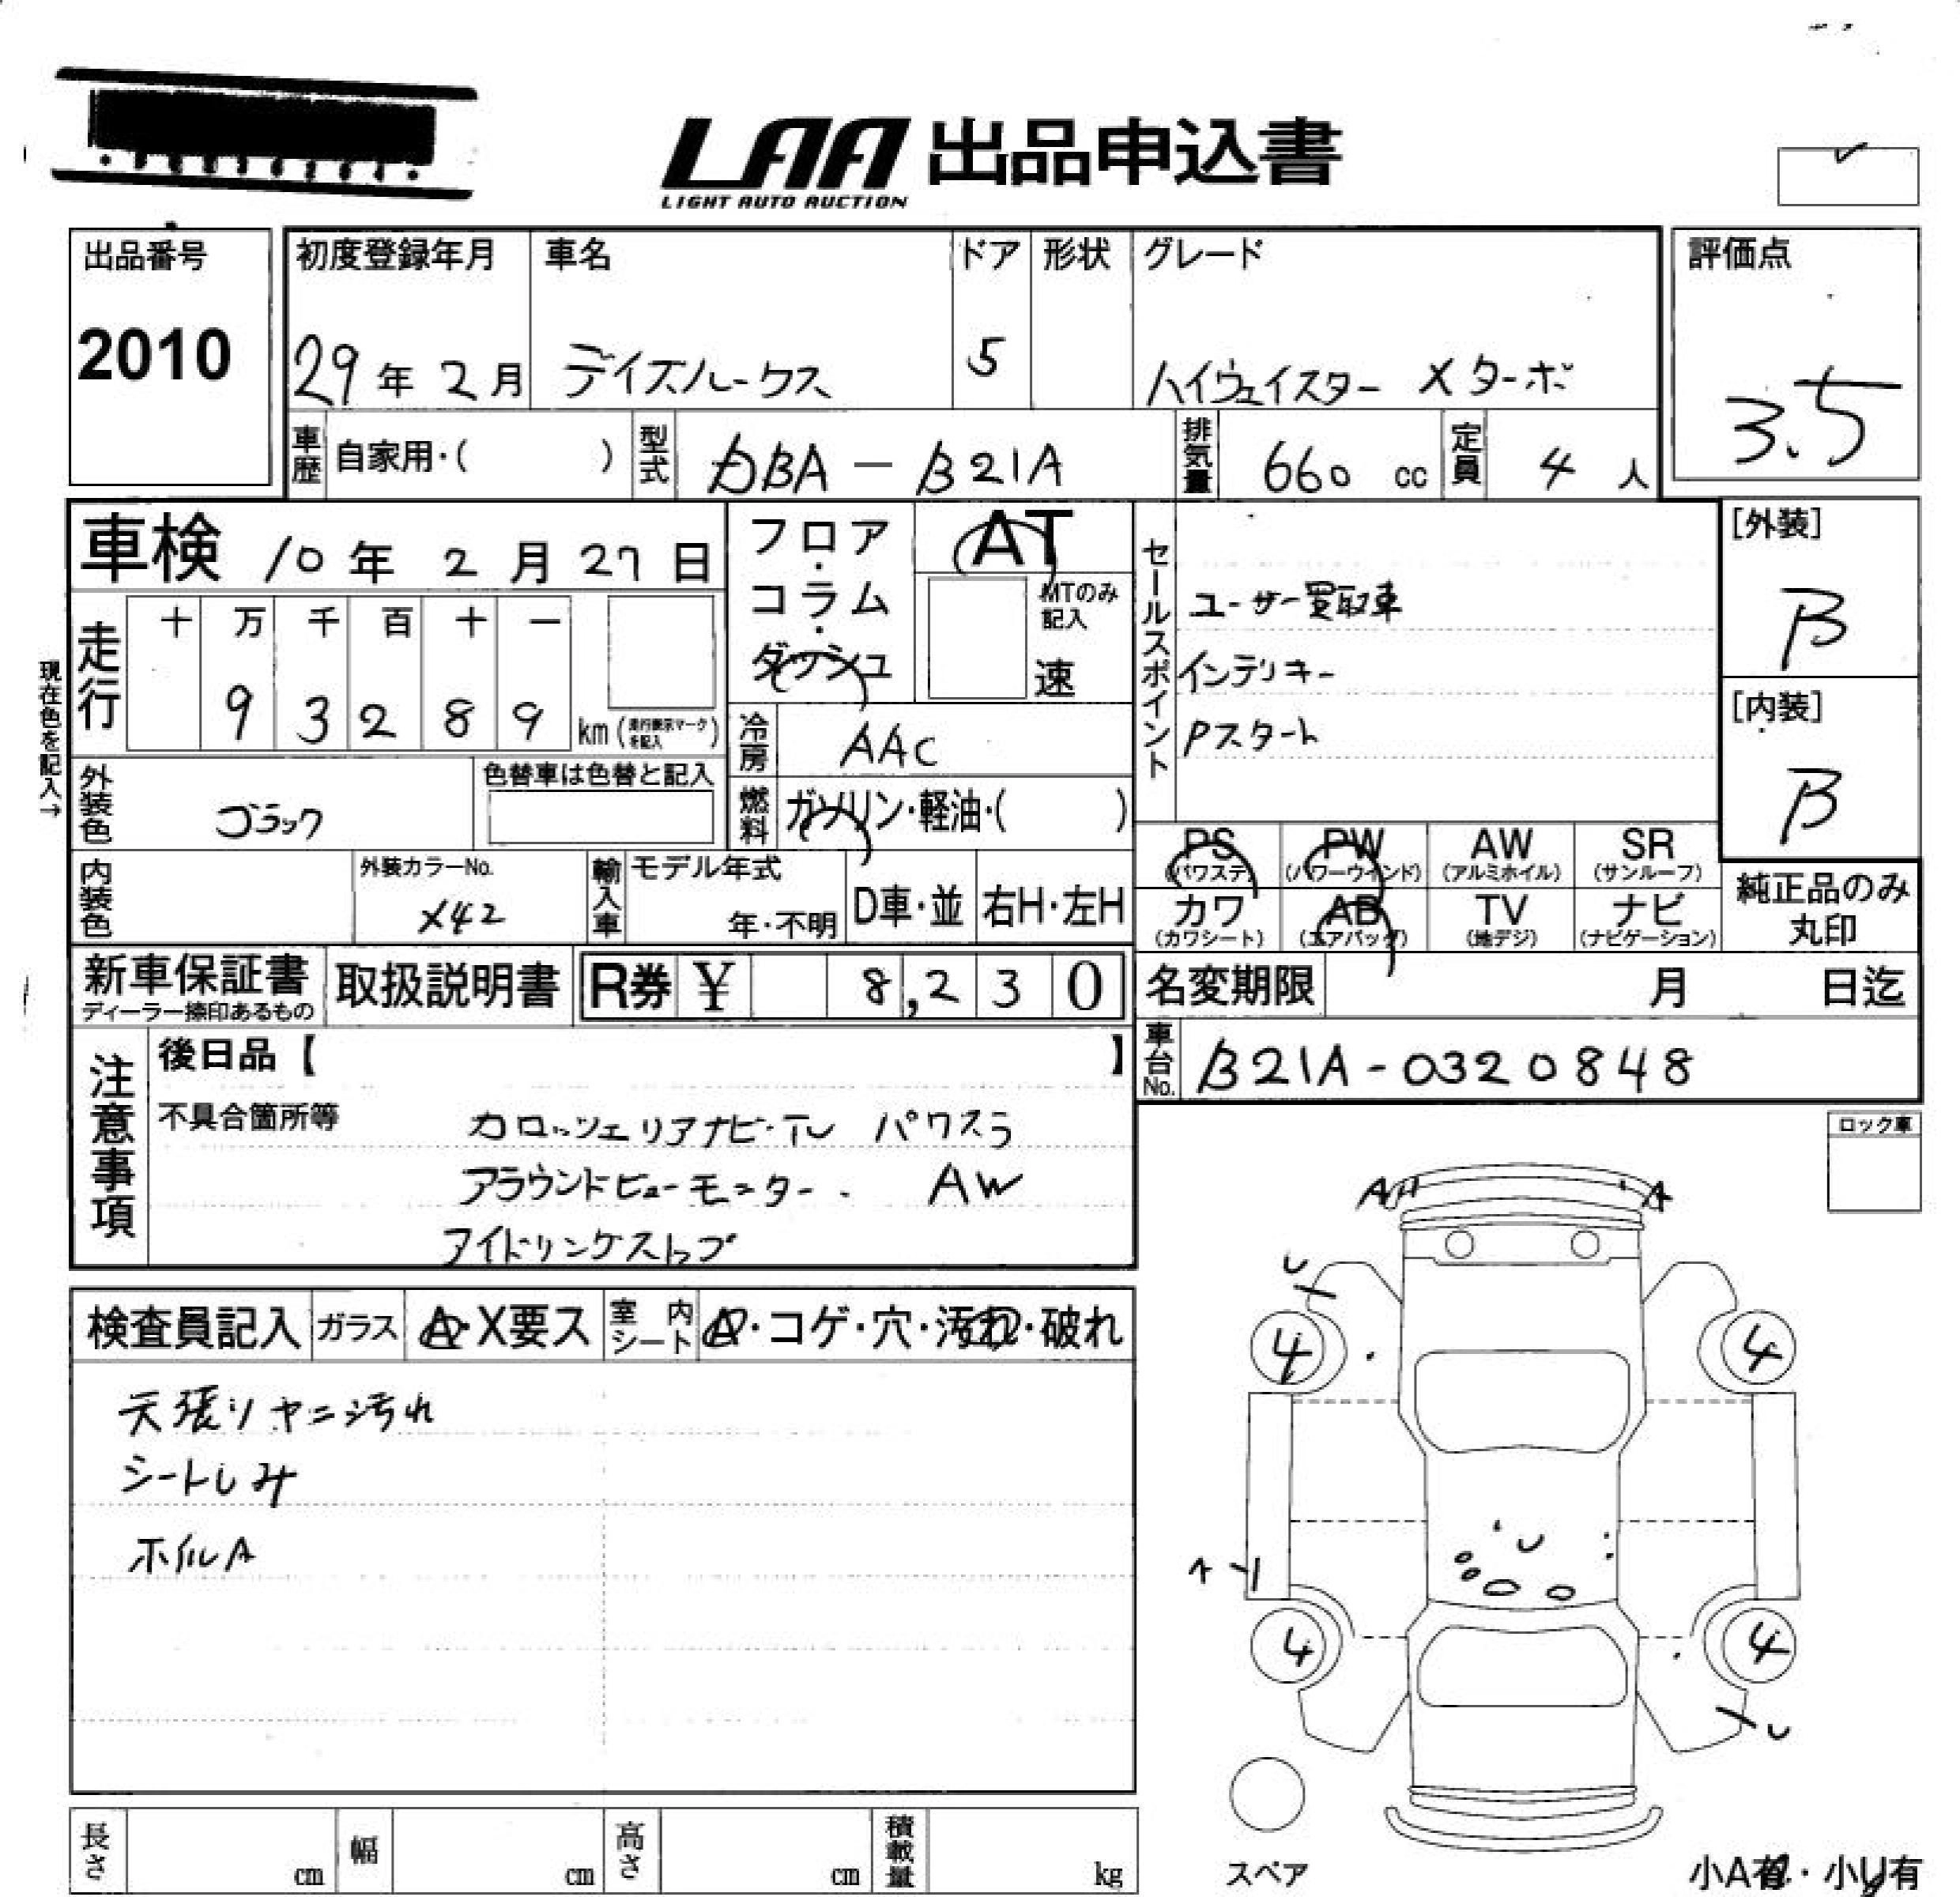 LAA 出品申込書
LIGHT AUTO AUCTION
出品番号
2010
初度登録年月 車名 ドア 形状 グレード
29年 2月 デイズルークス 5 ハイウェイスター Xターボ
評価点
3.5
車歴 自家用・( ) 型式 DBA-B21A 排気量 660 cc 定員 4 人
車検 10年 2月 27日
フロア・コラム・ダッシュ
AT
MTのみ記入
速
走行
十 万 千 百 十 一
9 3 2 8 9 km (走行表示マークを記入)
現在色を記入→
冷房 AAC
燃料 ガソリン・軽油・( )
外装色 ブラック
色替車は色替と記入
内装色
外装カラーNo.
X42
輸入車 モデル年式
年・不明
D車・並 右H・左H
セールスポイント
ユーザー買取車
インテリキー
Pスタート
[外装]
B
[内装]
B
PS PW AW SR
(パワステ) (パワーウインド) (アルミホイル) (サンルーフ)
カワ AB TV ナビ
(カワシート) (エアバッグ) (地デジ) (ナビゲーション)
純正品のみ
丸印
新車保証書
ディーラー捺印あるもの
取扱説明書
R券 ¥ 8,230
名変期限 月 日迄
車台No. B21A-0320848
注意事項
後日品【 】
不具合箇所等
カロッツェリアナビ・TV パワスラ
アラウンドビューモニター. AW
アイドリングストップ
ロック車
検査員記入 ガラス A・X要ス 室内シート A・コゲ・穴・汚れ・破れ
天張りヤニ汚れ
シートしみ
ホイルA
A A
U
4 4
A
4 4
U
スペア
長さ cm 幅 cm 高さ cm 積載量 kg
小A有・小U有